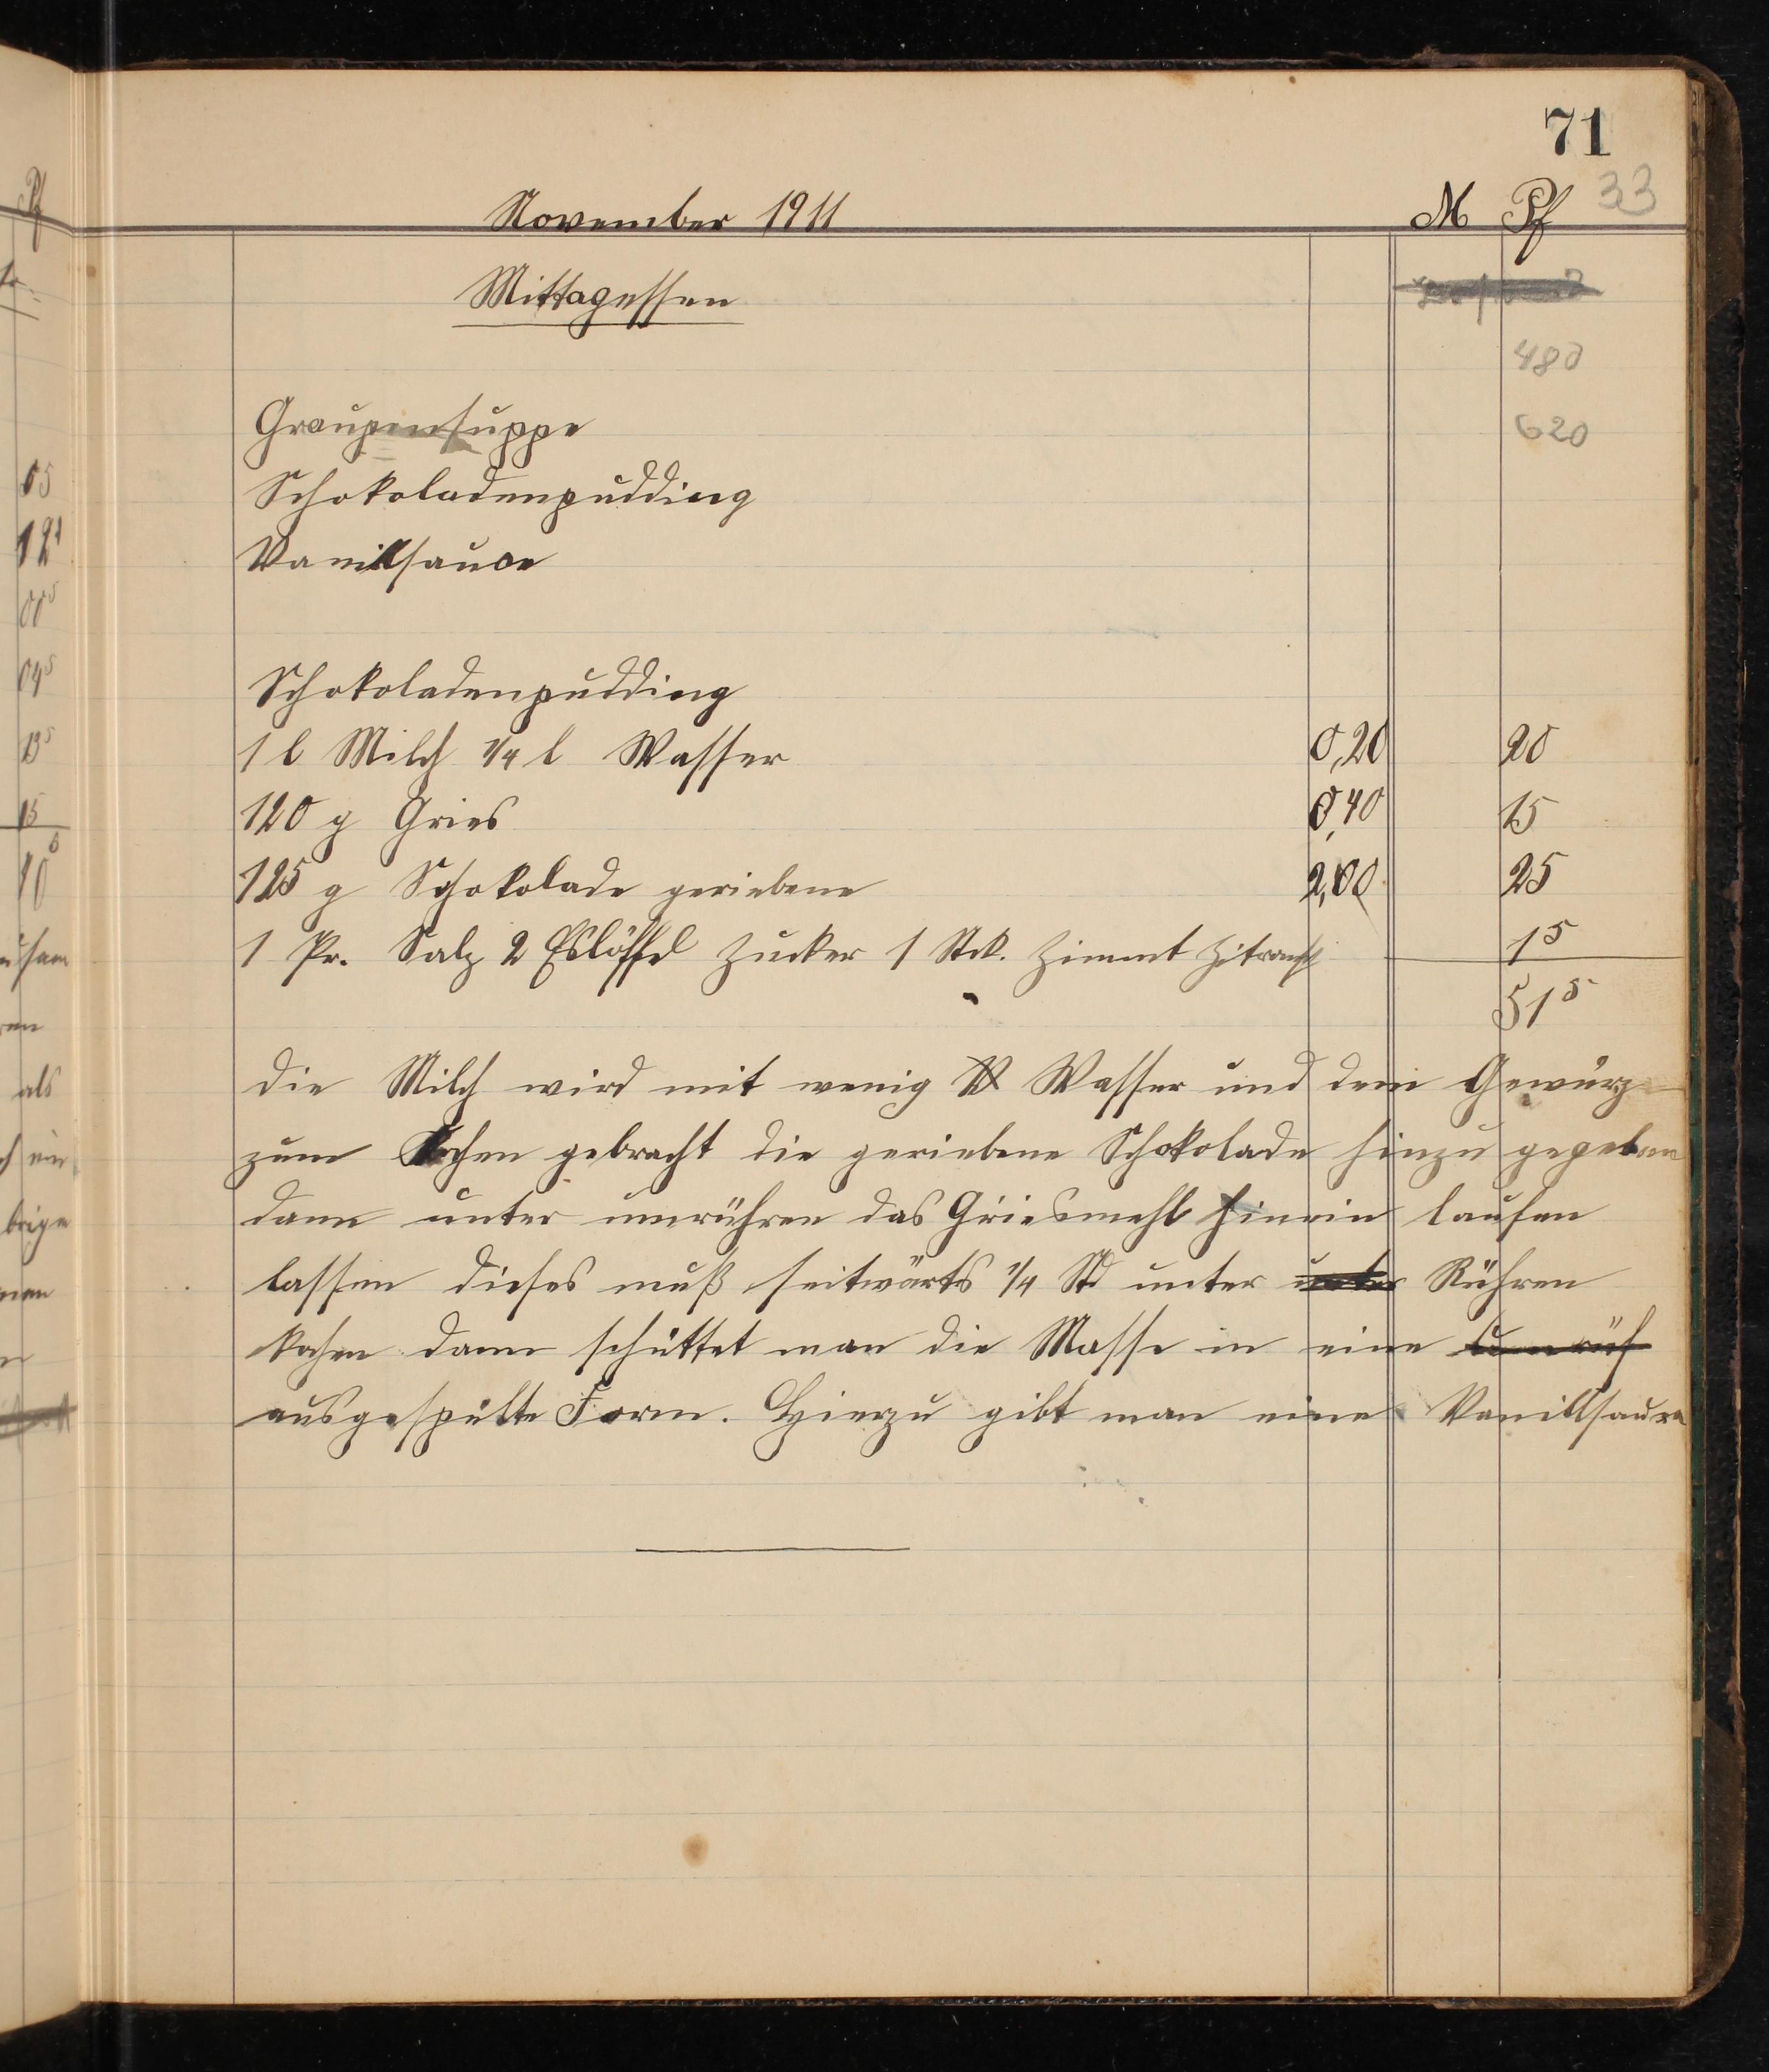 71
33
November 1911 M Pf
Mittagessen
480
Graupensuppe 620
Schokoladenpudding
Vanillsauce
Schokoladenpudding
1 l Milch 1/4 l Wasser 0,20 20
120 g Gries 0,40 15
125 g Schokolade geriebene 2,00 25
1 Pr. Salz 2 Eslöffel Zucker 1 Stck. Zimmt 1⁵
51⁵
die Milch wird mit wenig W Wasser und dem Gewürz
zum Kochen gebracht die geriebene Schokolade hinzu gegeben
dann unter umrühren das Griesmehl hinein laufen
lassen dieses muß seitwärts 1/4 Std unter unter Rühren
kochen dann schüttet man die Masse in eine
ausgespülte Form. Hierzu gibt man eine Vanillsauce
Pf
05
00⁵
04⁵
15
als
ein